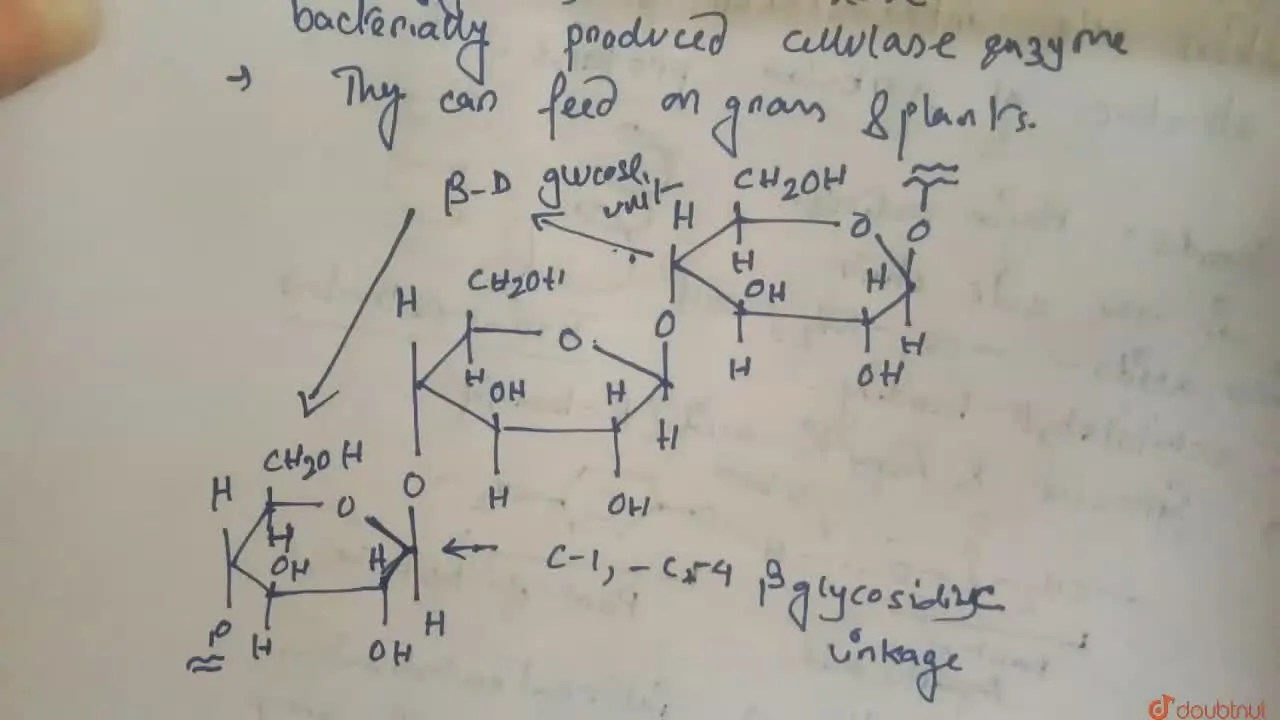 bacterially produced cellulase enzyme
→ They can feed on grass & plants.
β-D glucose unit
CH2OH
O
H
O
H
OH
H
H
H
OH
O
CH2OH
H
O
H
OH
H
H
H
OH
O
CH2OH
H
O
H
OH
H
H
H
OH
O
C-1, - C-4 β glycosidic
linkage
doubtnut